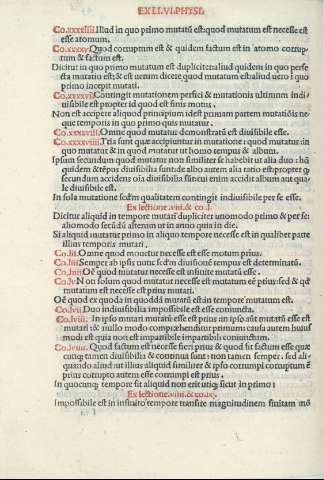 EX LI. VI. PHYSI.
Co. xxxxiiii. Illud in quo primo mutatū est quod mutatum est necesse est
esse atomum.
Co. xxxxv. Quod corruptum est & quidem factum est in atomo corrup-
tum & factum est.
Dicitur in quo primo mutatum est dupliciter aliud quidem in quo perfe-
cta mutatio est; & est uerum dicere quod mutatum est aliud uero i quo
primo incepit mutari.
Co. xxxxvi. Contingit mutationem perfici & mutationis ultimum indi-
uisibile est propter id quod est finis motus.
Non est accipere aliquod principium idest primam partem mutatiōis ne-
que temporis in quo primo quis mutatur.
Co. xxxxvii. Omne quod mutatur demonstratū est diuisibile esse.
Co. xxxxviii. Tria sunt quae accipiuntur in mutatione: quod mutatur: in
quo mutatur & in quod mutatur ut homo tempus & album.
Ipsum secundum quod mutatur non similiter se habebit ut alia duo: hō
quidem & tēpus diuisibilia sunt: de albo autem alia ratio est: propter qd
secundum accidens oīa diuisibilia sunt: cui enim accidit album aut qua-
le diuisibile est.
In sola mutatione scdm qualitatem contingit indiuisibile per se esse.
Ex lectione. viii. & co. l.
Dicitur aliquid in tempore mutari dupliciter uno modo primo & per se:
alio modo secūdū alterum ut in anno quia in die.
Si aliquid mutatur primo in aliquo tempore necesse est in qualibet parte
illius temporis mutari.
Co. lii. Omne quod mouetur necesse est esse motum prius.
Co. liii. Semper ab ipsis nunc scdm diuisionē tempus est determinatū.
Co. liiii. Oē quod mutatur necesse est infinite mutatū esse.
Co. lv. Non solum quod mutatur necesse est mutatum eē prius: sed & qd
mutatum est necesse est prius mutari.
Oē quod ex quoda in quoddā mutatū est: in tempore mutatum est.
Co. lvi. Duo indiuisibilia impossibile est esse coniuncta.
Co. lvii. In ipso mutari mutatū esse est prius: an ipso aūt mutatū esse est
mutari: & nullo modo comprehenditur primum: causa autem huius
modi est quia non est impartibile impartibili coniunctum.
Co. lviii. Quod factum est necesse fieri prius & quod fit factum esse quae
cunq; tamen diuisibilia & continua sunt: non tamen semper: sed ali-
quando aliud ut illius aliquid similiter & ipso corrumpi corruptum ē
prius corrupto autem esse corrumpi est prius.
In quocunq; tempore sit aliquid non erit utiq; sicut in primo:
Ex lectione. viii. & co. lx.
Impossibile est in infinito tempore transire magnitudinem finitam mo